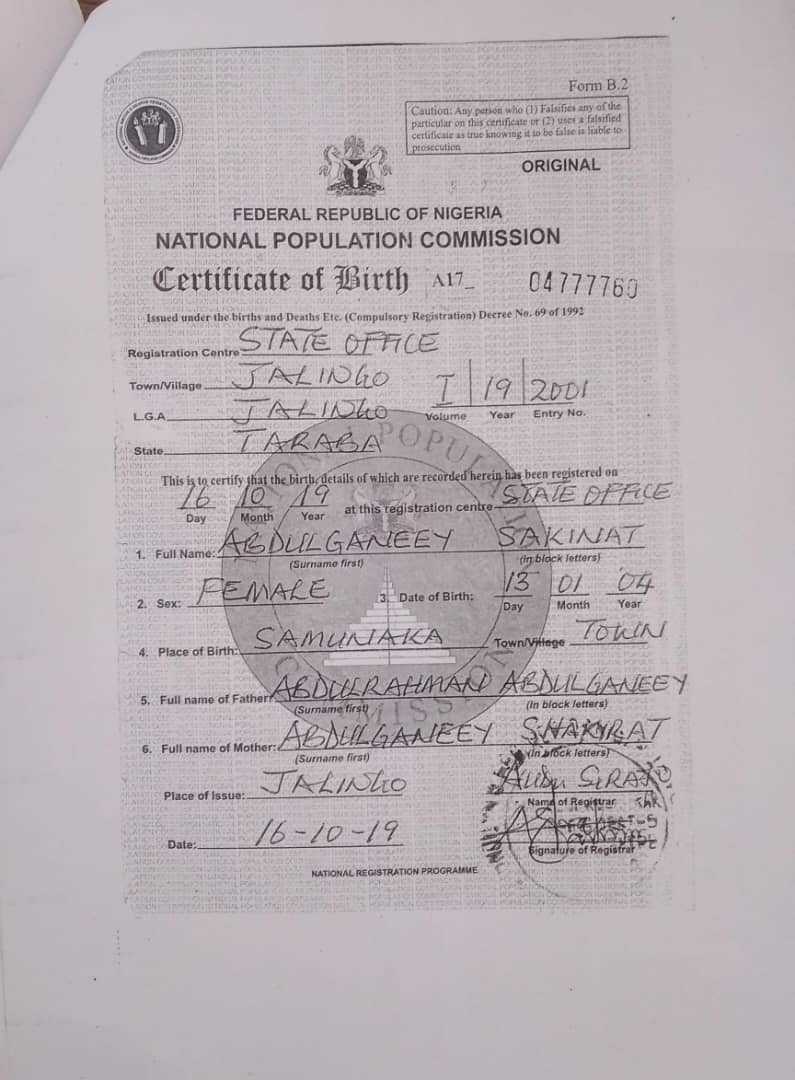 Form B.2
Caution: Any person who (1) Falsifies any of the
particular on this certificate or (2) uses a falsified
certificate as true knowing it to be false is liable to
prosecution
ORIGINAL
FEDERAL REPUBLIC OF NIGERIA
NATIONAL POPULATION COMMISSION
Certificate of Birth A17_ 04777760
Issued under the births and Deaths Etc. (Compulsory Registration) Decree No. 69 of 1992
Registration Centre STATE OFFICE
Town/Village JALINGO
I 19 2001
L.G.A. JALINGO Volume Year Entry No.
State TARABA
This is to certify that the birth, details of which are recorded herein has been registered on
16 10 19 at this registration centre STATE OFFICE
Day Month Year
1. Full Name: ABDULGANEEY SAKINAT
(Surname first) (In block letters)
2. Sex: FEMALE 3. Date of Birth: 13 01 04
Day Month Year
4. Place of Birth: SAMUNAKA Town/Village TOWN
5. Full name of Father: ABDULRAHMAN ABDULGANEEY
(Surname first) (In block letters)
6. Full name of Mother: ABDULGANEEY SHAKYRAT
(Surname first) (In block letters)
Place of Issue: JALINGO
Name of Registrar
Date: 16-10-19
Signature of Registrar
NATIONAL REGISTRATION PROGRAMME